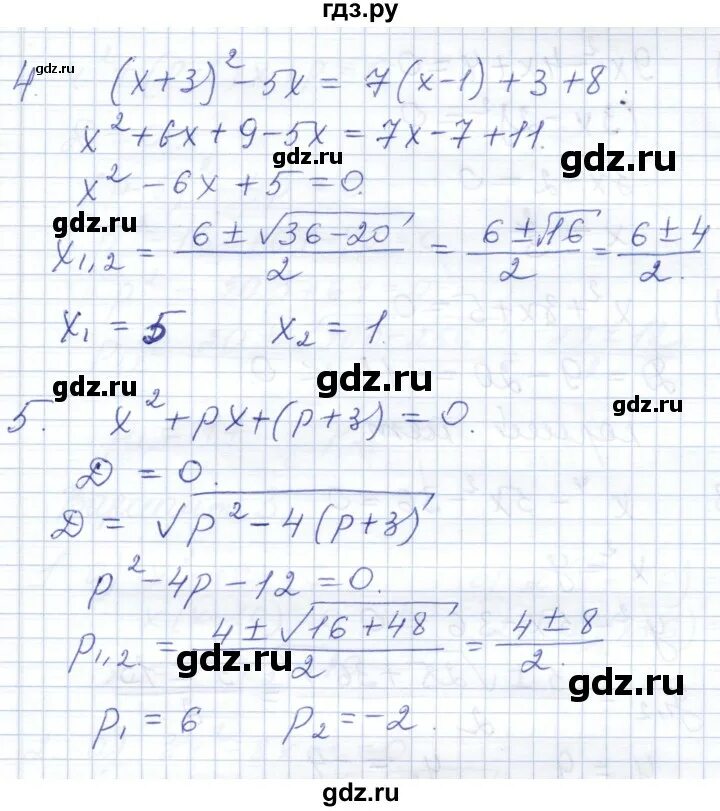 гдз.ру
4. (x+3)² - 5x = 7(x-1) + 3 + 8
gdz.ru
gdz.ru
x² + 6x + 9 - 5x = 7x - 7 + 11.
gdz.ru
x² - 6x + 5 = 0.
gdz.ru
x₁,₂ = (6 ± √(36-20))/2 = (6 ± √16)/2 = (6 ± 4)/2.
x₁ = 5 x₂ = 1.
gdz.ru
gdz.ru
gdz.ru
5. x² + px + (p+3) = 0.
D = 0.
D = √(p² - 4(p+3))
p² - 4p - 12 = 0.
p₁,₂. = (4 ± √(16+48))/2 = (4 ± 8)/2.
gdz.ru
gdz.ru
p₁ = 6 p₂ = -2.
gdz.ru